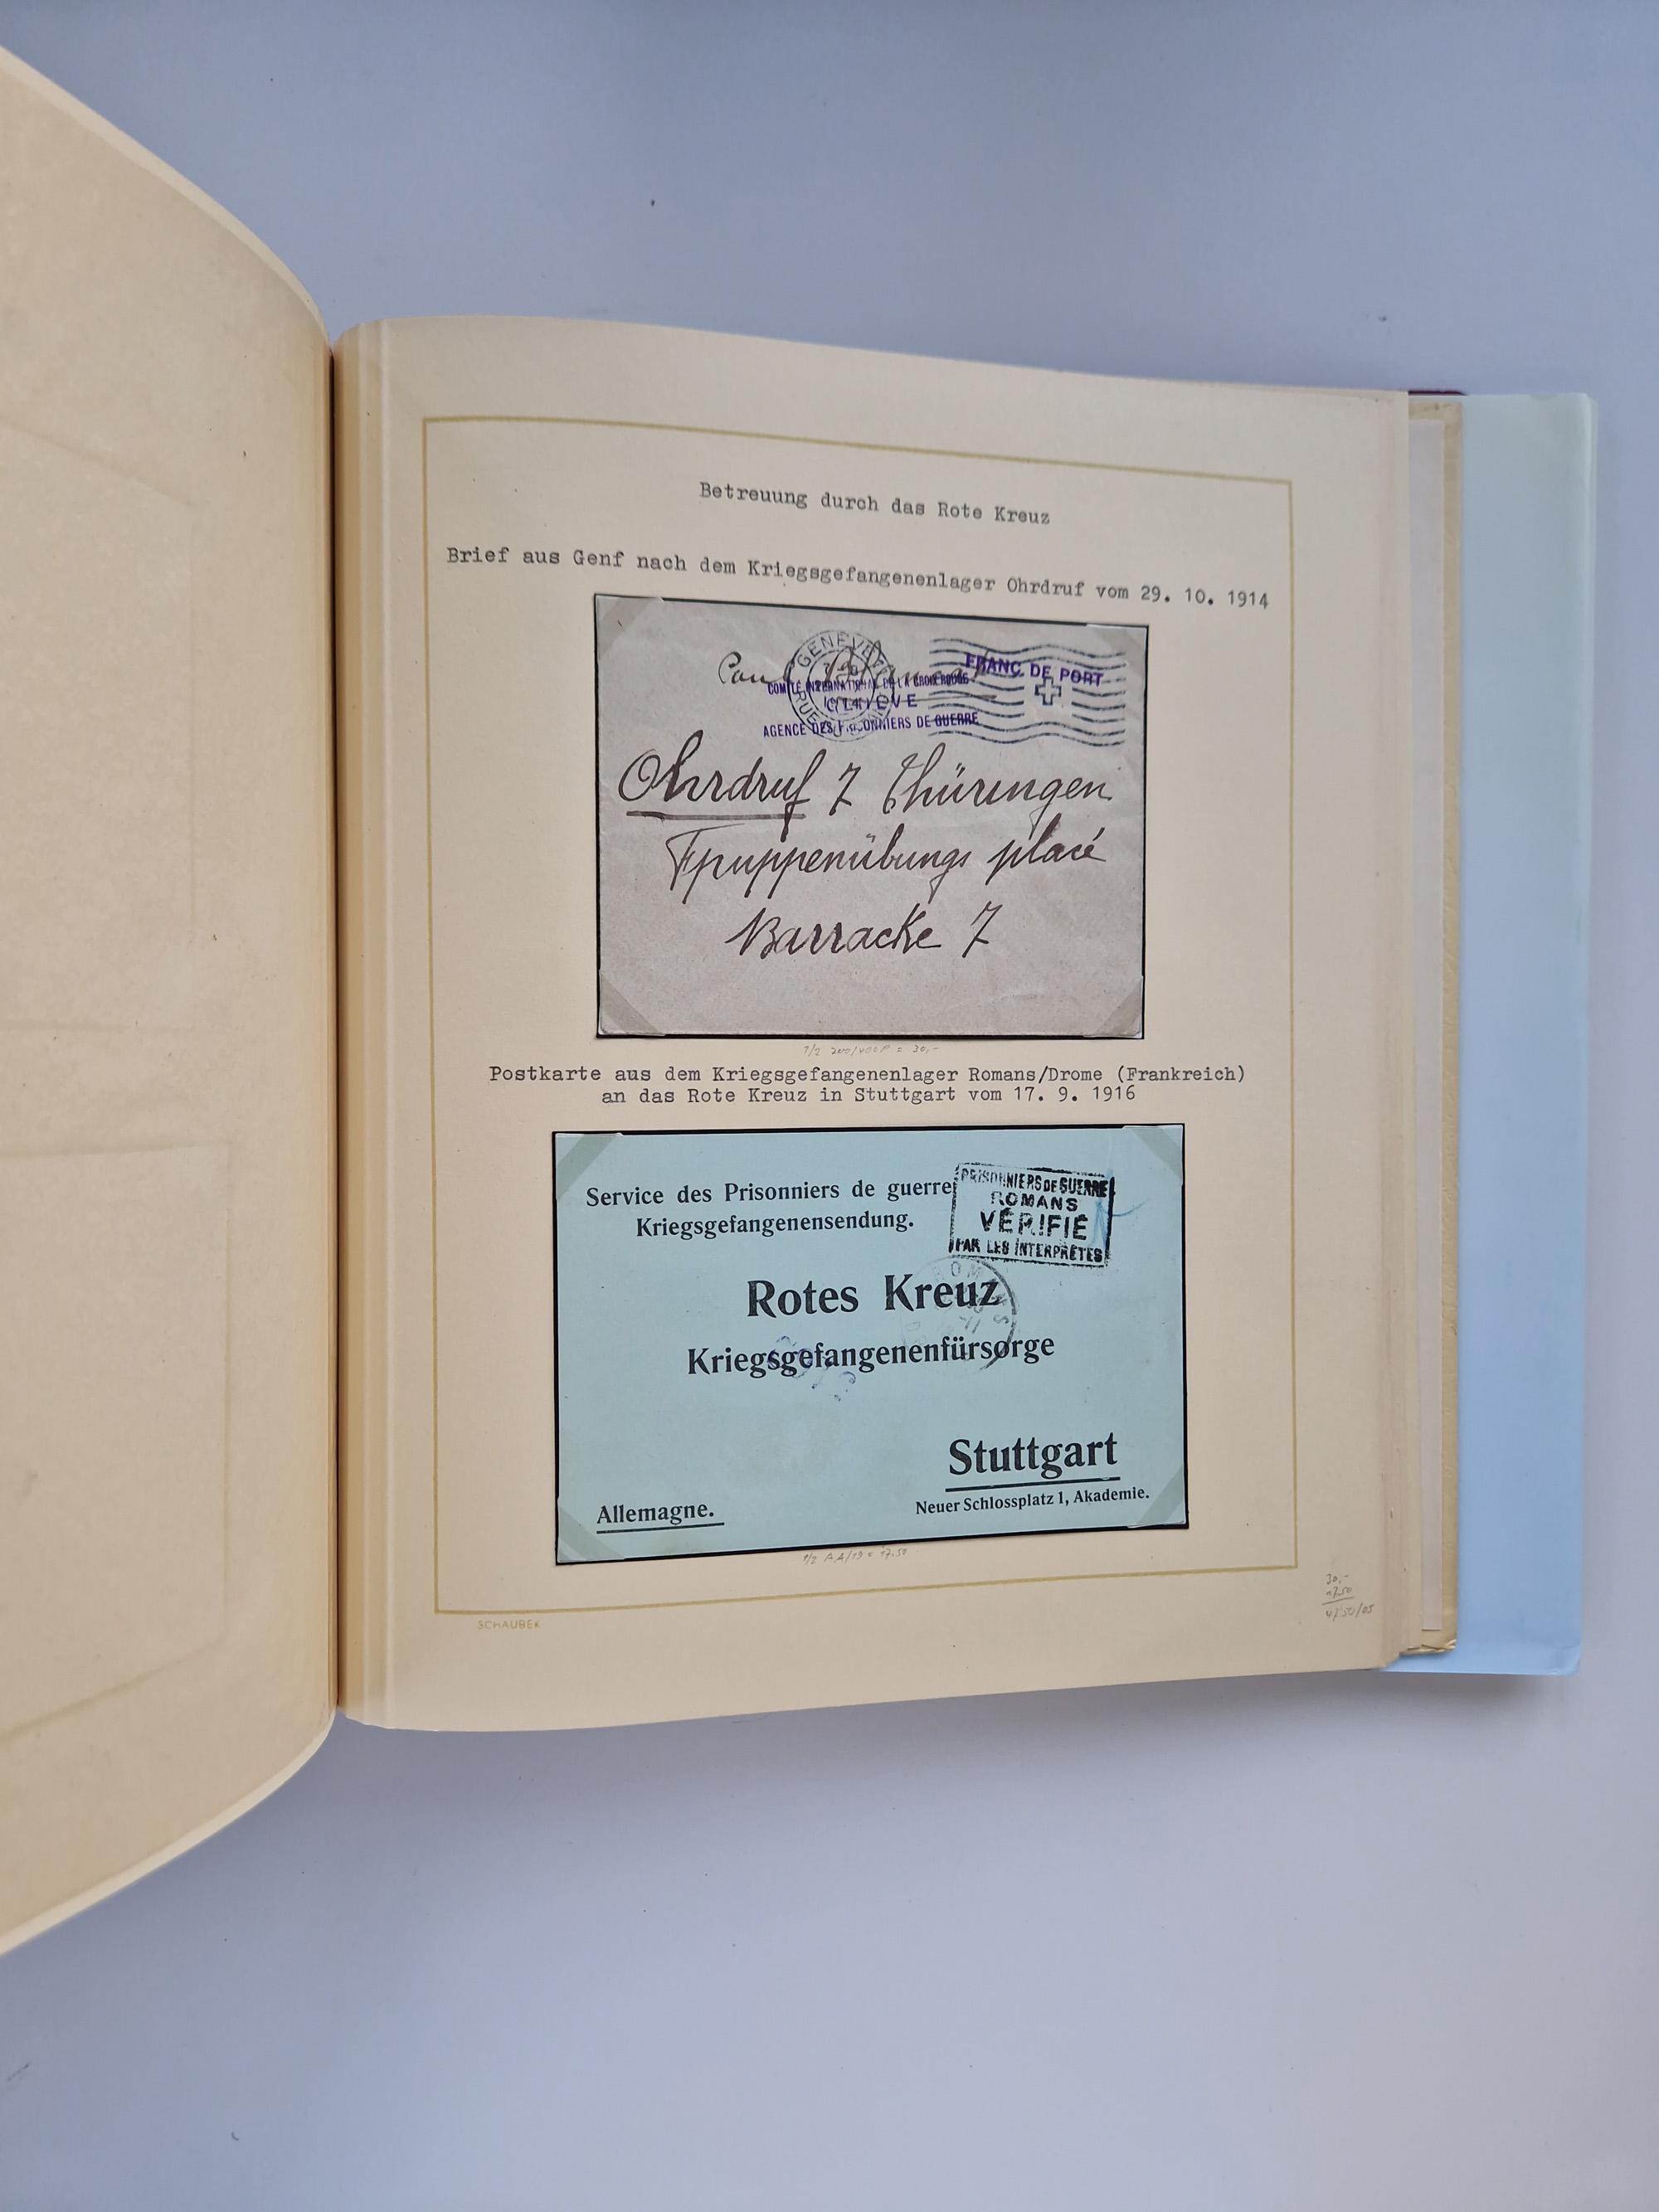 Betreuung durch das Rote Kreuz
Brief aus Genf nach dem Kriegsgefangenenlager Ohrdruf vom 29. 10. 1914
GENEVE
FRANC DE PORT
COMITÉ INTERNATIONAL DE LA CROIX-ROUGE
AGENCE DES PRISONNIERS DE GUERRE
Ohrdruf 7 Thüringen
Truppenübungs placé
Barracke 7
Postkarte aus dem Kriegsgefangenenlager Romans/Drome (Frankreich)
an das Rote Kreuz in Stuttgart vom 17. 9. 1916
Service des Prisonniers de guerre
Kriegsgefangenensendung.
PRISONNIERS DE GUERRE
ROMANS
VÉRIFIÉ
PAR LES INTERPRÈTES
Rotes Kreuz
Kriegsgefangenenfürsorge
Stuttgart
Neuer Schlossplatz 1, Akademie.
Allemagne.
SCHAUBEK
30,-
17.50
47.50/05